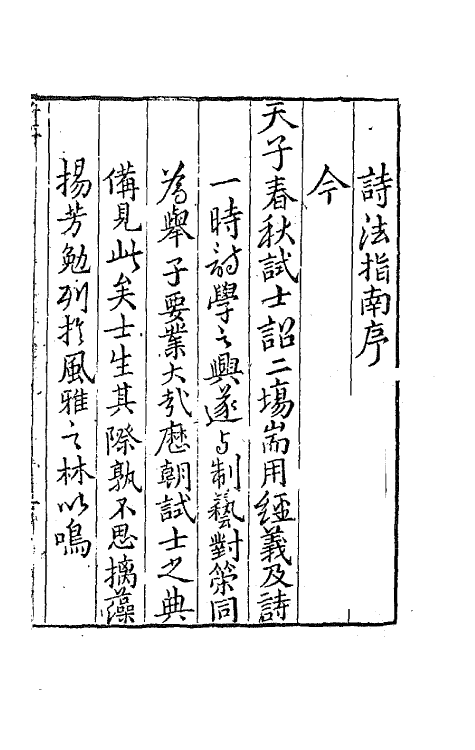 詩法指南序
今
天子春秋試士詔二場耑用經義及詩
一時詩學之興遂与制藝對策同
為舉子要業大哉歷朝試士之典
備見此矣士生其際孰不思摛藻
揚芳勉列於風雅之林以鳴